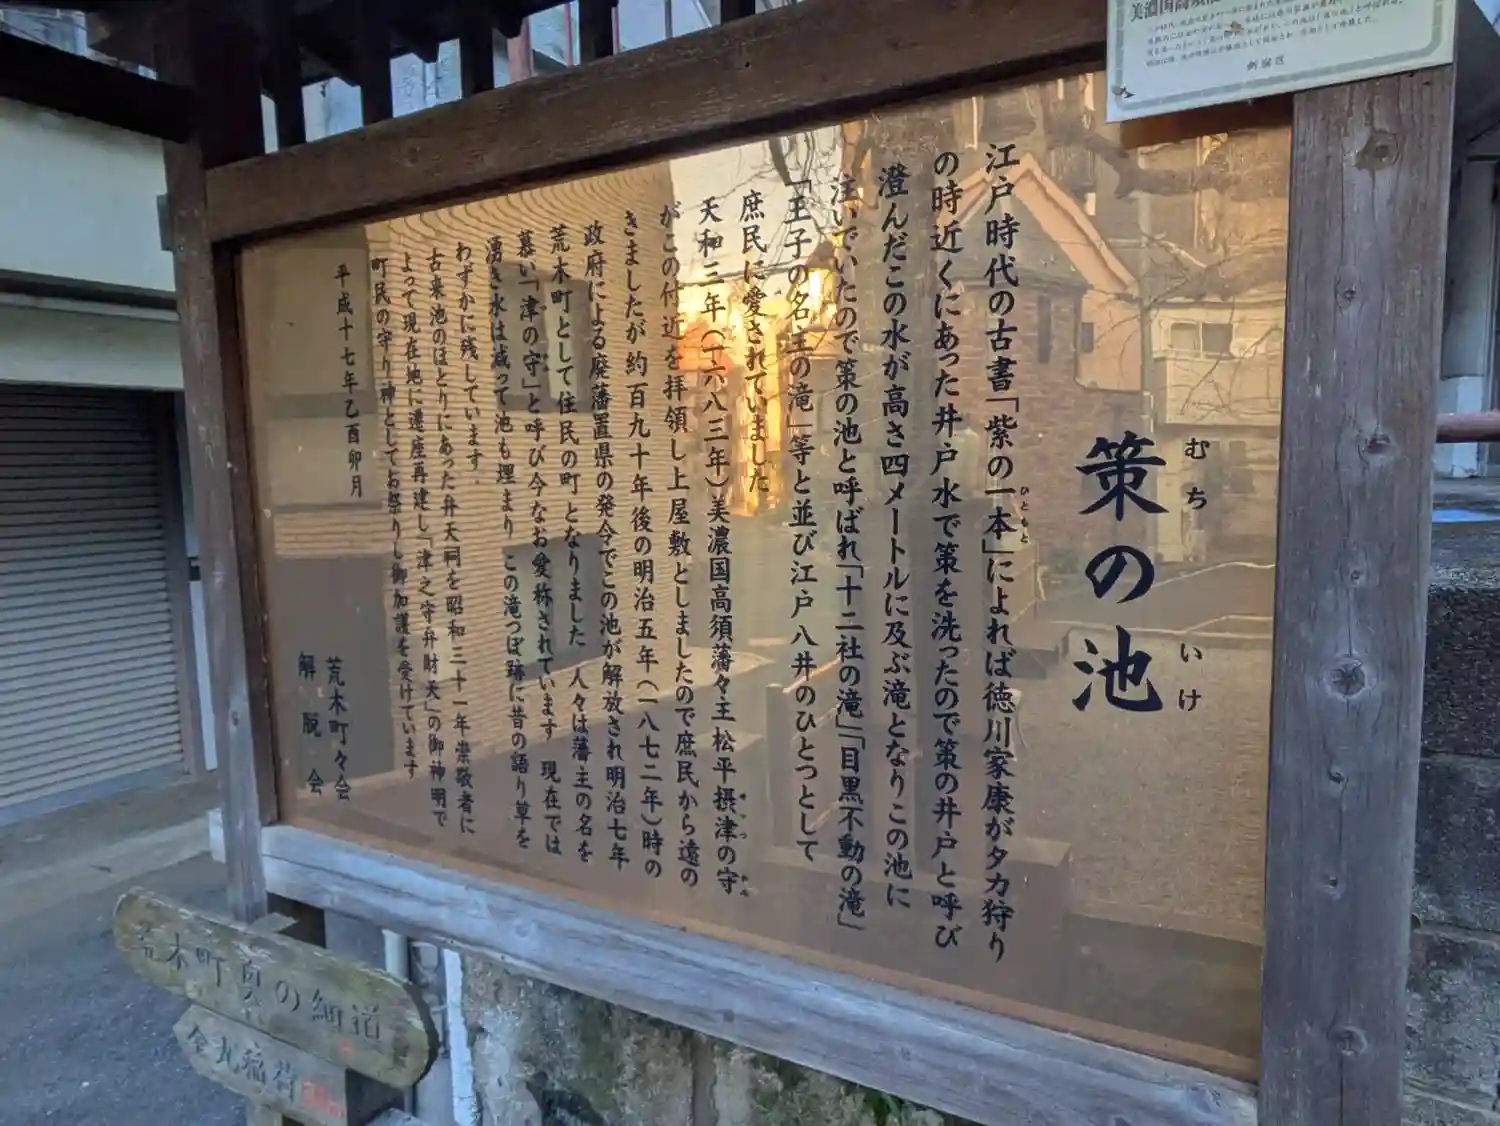 策の池
むち いけ
江戸時代の古書「紫の一本」によれば徳川家康がタカ狩り
ひともと
の時近くにあった井戸水で策を洗ったので策の井戸と呼び
澄んだこの水が高さ四メートルに及ぶ滝となりこの池に
注いでいたので策の池と呼ばれ「十二社の滝」「目黒不動の滝」
「王子の名主の滝」等と並び江戸八井のひとつとして
庶民に愛されていました
天和三年(一六八三年)美濃国高須藩々主松平摂津の守
せっつ かみ
がこの付近を拝領し上屋敷としましたので庶民から遠の
きましたが約百九十年後の明治五年(一八七二年)時の
政府による廃藩置県の発令でこの池が解放され明治七年
荒木町として住民の町となりました 人々は藩主の名を
慕い「津の守」と呼び今なお愛称されています 現在では
湧き水は減って池も埋まり この滝つぼ跡に昔の語り草を
わずかに残しています
古来池のほとりにあった弁天祠を昭和三十一年崇敬者に
よって現在地に遷座再建し「津之守弁財天」の御神明で
町民の守り神としてお祭りし御加護を受けています
平成十七年乙酉卯月
荒木町々会
解脱会
美濃国高須
新宿区
荒木町奥の細道
金丸稲荷